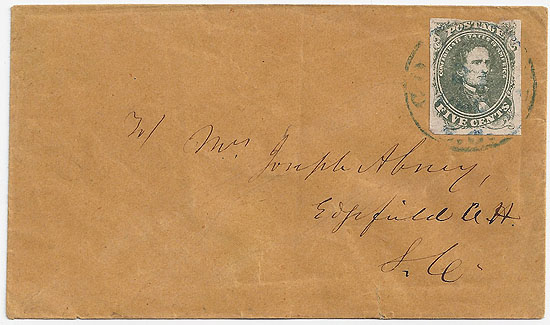 POSTAGE
CONFEDERATE STATES OF AMERICA
FIVE CENTS
Mrs Joseph Abney,
Edgefield C.H.
S. C.